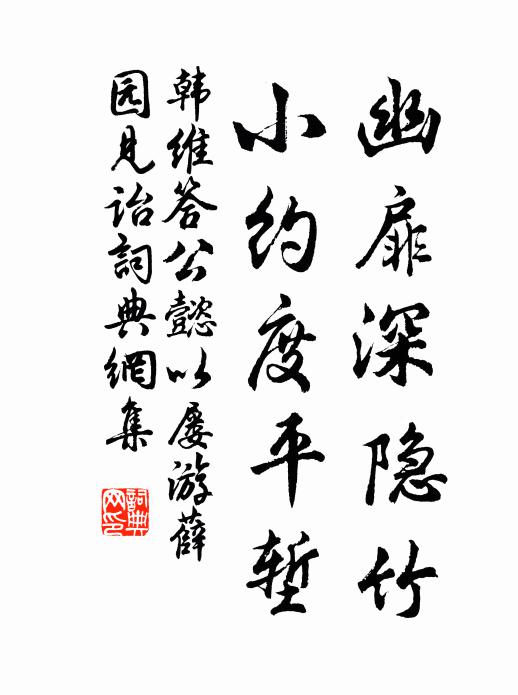 幽扉深隐竹
小约度平堑
韩维答公懿以屡游薛
园见诒詞典網集
詞典网印